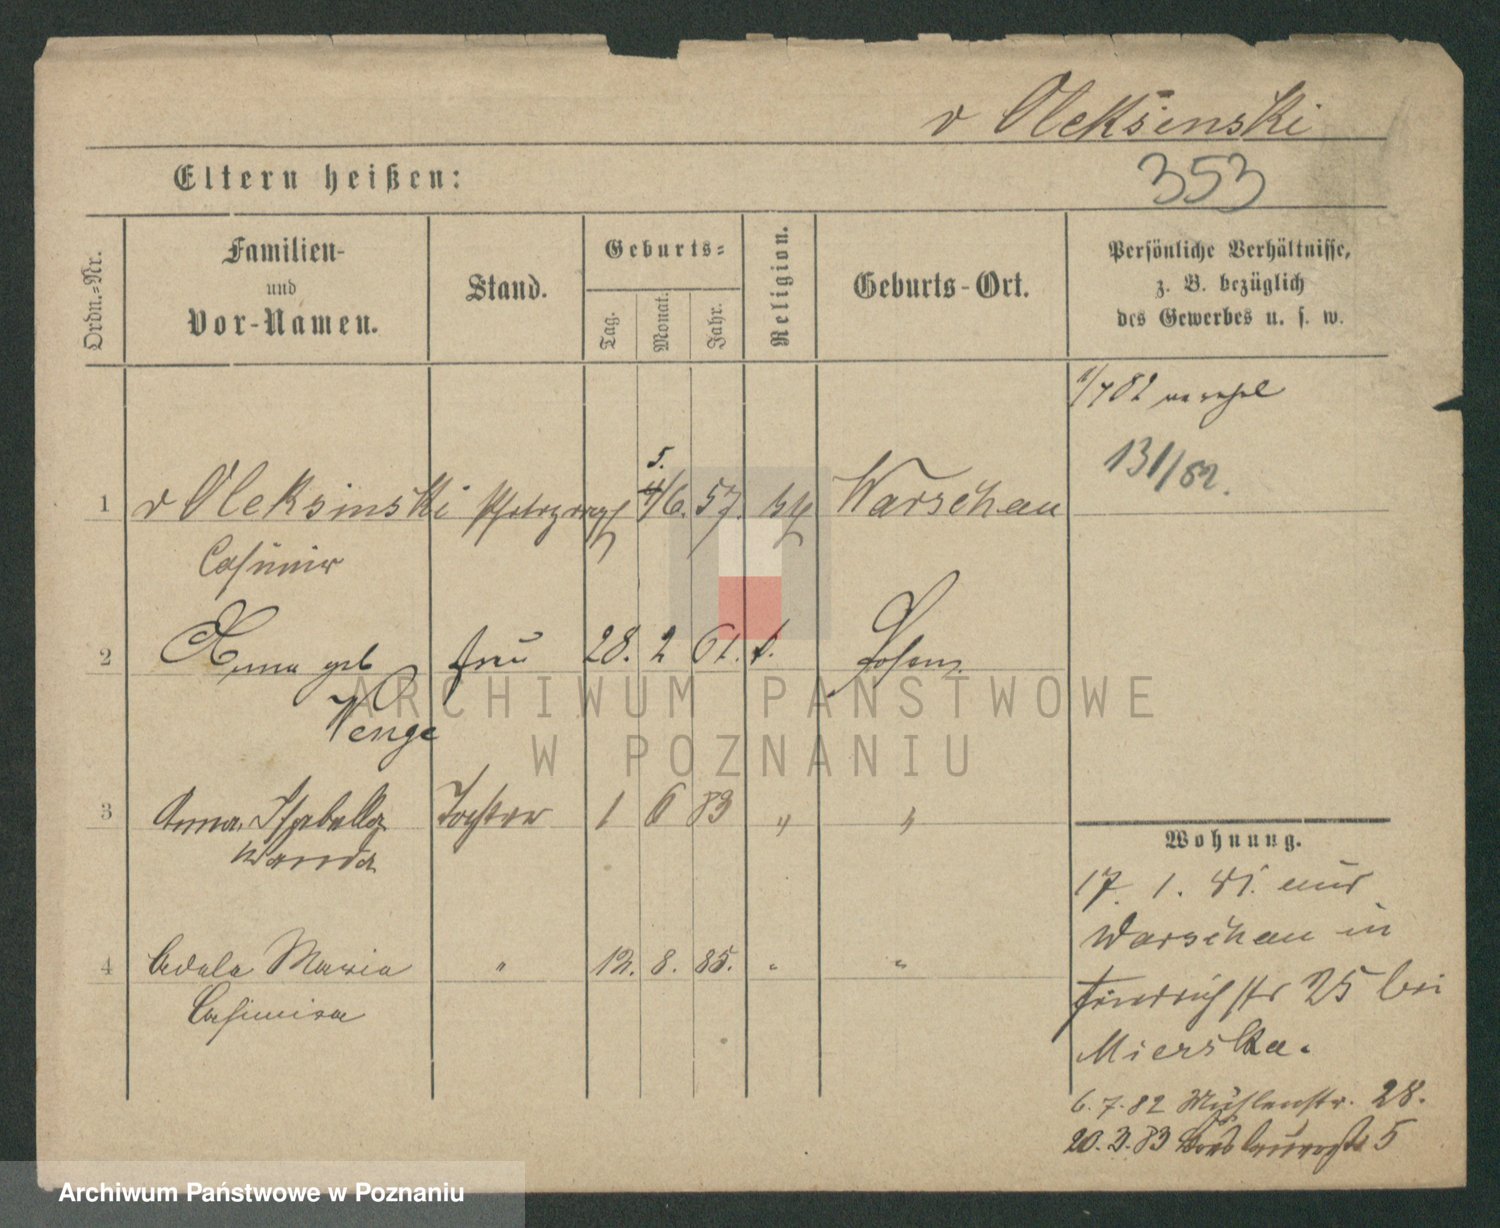 v Oleksinski
Eltern heißen:
353
Ordn.-Nr.
Familien-
und
Vor-Namen.
Stand.
Geburts-
Tag.
Monat.
Jahr.
Religion.
Geburts-Ort.
Persönliche Verhältnisse,
z. B. bezüglich
des Gewerbes u. s. w.
/7 82
131/82.
1 v Oleksinski 5. /6. 57. kth Warschau
Casimir
2 Anna geb Frau 28. 2 61. k. Posen
Wenge
3 Anna, Isabella Tochter 1 6 83 " "
Wanda
4 Adela Maria " 12. 8. 85. " "
Casimira
Wohnung.
17. 1. 81. aus
Warschau in
Friedrichstr 25 bei
Mierska.
6. 7. 82 Mühlenstr. 28.
20. 3. 83 5
ARCHIWUM PAŃSTWOWE
W POZNANIU
Archiwum Państwowe w Poznaniu